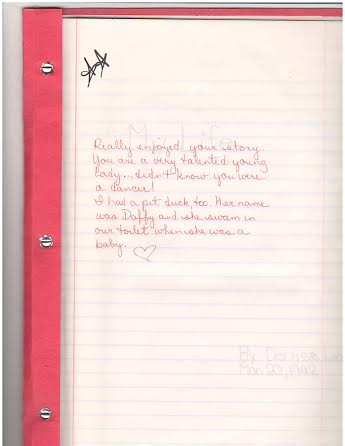 Really enjoyed your story.
You are a very talented young
lady...didn't know you were
a dancer!
I had a pet duck, too. Her name
was Daffy and she swam in
our toilet when she was a
baby.
My Life
By Denise
Mar. 20, 1992